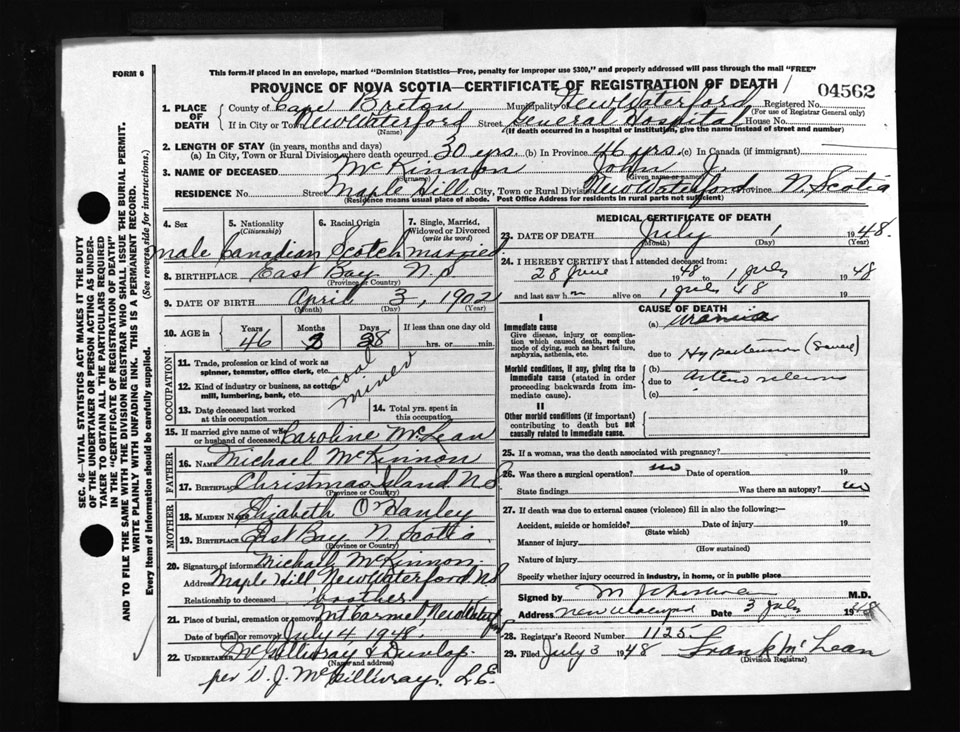 FORM 6
This form if placed in an envelope, marked "Dominion Statistics—Free, penalty for improper use $300," and properly addressed will pass through the mail "FREE"
PROVINCE OF NOVA SCOTIA—CERTIFICATE OF REGISTRATION OF DEATH
04562
1. PLACE OF DEATH
County of Cape Breton Municipality of New Waterford Registered No.
(For use of Registrar General only)
If in City or Town New Waterford Street General Hospital House No.
(Name) (If death occurred in a hospital or institution, give the name instead of street and number)
2. LENGTH OF STAY (in years, months and days)
(a) In City, Town or Rural Division where death occurred 30 yrs. (b) In Province 46 yrs. (c) In Canada (if immigrant)
3. NAME OF DECEASED McKinnon John J.
(Surname) (Given name or names)
RESIDENCE No. Street Maple Hill City, Town or Rural Division New Waterford Province N. Scotia
(Residence means usual place of abode. Post Office Address for residents in rural parts not sufficient)
4. Sex
male
5. Nationality
(Citizenship)
Canadian
6. Racial Origin
Scotch
7. Single, Married, Widowed or Divorced
(write the word)
married
8. BIRTHPLACE East Bay N.S
(Province or Country)
9. DATE OF BIRTH April 3, 1902
(Month) (Day) (Year)
10. AGE in Years Months Days If less than one day old
46 28 hrs. or min.
OCCUPATION
11. Trade, profession or kind of work as spinner, teamster, office clerk, etc.
coal miner
12. Kind of industry or business, as cotton mill, lumbering, bank, etc.
13. Date deceased last worked at this occupation
14. Total yrs. spent in this occupation
15. If married give name of wife or husband of deceased Caroline McLean
FATHER
16. NAME Michael McKinnon
17. BIRTHPLACE Christmas Island N.S.
(Province or Country)
MOTHER
18. MAIDEN NAME Elizabeth O'Hanley
19. BIRTHPLACE East Bay N. Scotia
(Province or Country)
20. Signature of informant Michael McKinnon
Address Maple Hill New Waterford N.S
Relationship to deceased brother
21. Place of burial, cremation or removal Mt Carmel, New Waterford
Date of burial or removal July 4 1948.
22. UNDERTAKER McGillivray & Dunlop.
(Name and address)
per D. J. McGillivray. L.E.
MEDICAL CERTIFICATE OF DEATH
23. DATE OF DEATH July 1 1948.
(Month) (Day) (Year)
24. I HEREBY CERTIFY that I attended deceased from:
28 June 1948 to 1 July 1948
and last saw him alive on 1 July 48 19
CAUSE OF DEATH
I
Immediate cause
Give disease, injury or complication which caused death, not the mode of dying, such as heart failure, asphyxia, asthenia, etc.
(a) Uraemia
due to Hypertension (Severe)
Morbid conditions, if any, giving rise to immediate cause (stated in order proceeding backwards from immediate cause).
(b)
due to
(c)
II
Other morbid conditions (if important) contributing to death but not causally related to immediate cause.
25. If a woman, was the death associated with pregnancy?
26. Was there a surgical operation? no Date of operation 19
State findings Was there an autopsy? no
27. If death was due to external causes (violence) fill in also the following:—
Accident, suicide or homicide? Date of injury 19
(State which)
Manner of injury
(How sustained)
Nature of injury
Specify whether injury occurred in industry, in home, or in public place
Signed by M.D.
Address New Waterford Date 3 July 1948
28. Registrar's Record Number 1125
29. Filed July 3 1948 Frank McLean
(Division Registrar)
SEC. 46—VITAL STATISTICS ACT MAKES IT THE DUTY
OF THE UNDERTAKER OR PERSON ACTING AS UNDERTAKER
TO OBTAIN ALL THE PARTICULARS REQUIRED
IN THE "CERTIFICATE OF REGISTRATION OF DEATH"
AND TO FILE THE SAME WITH THE DIVISION REGISTRAR WHO SHALL ISSUE THE BURIAL PERMIT.
WRITE PLAINLY WITH UNFADING INK. THIS IS A PERMANENT RECORD.
Every item of information should be carefully supplied. (See reverse side for instructions.)